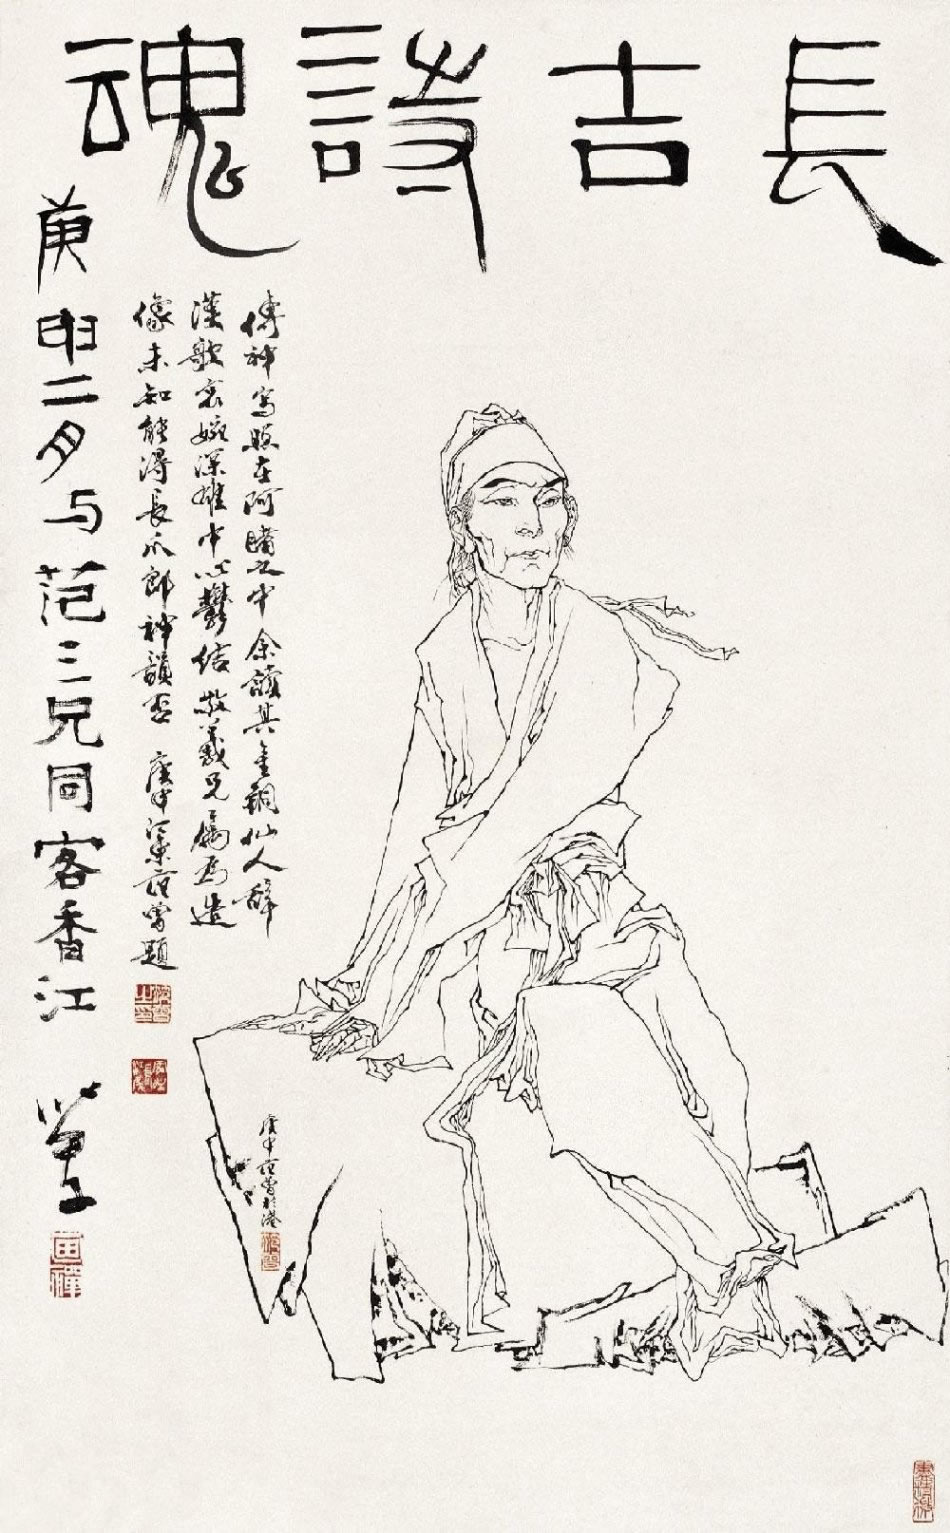 長吉詩魂
傳神寫照在阿睹之中余讀其金銅仙人辭
漢歌哀婉深雄中心鬱結敬羲兄屬為造
像未知能得長爪郎神韻否 庚申江東范曾題
庚申二月与范三兄同客香江
庚申范曾於港